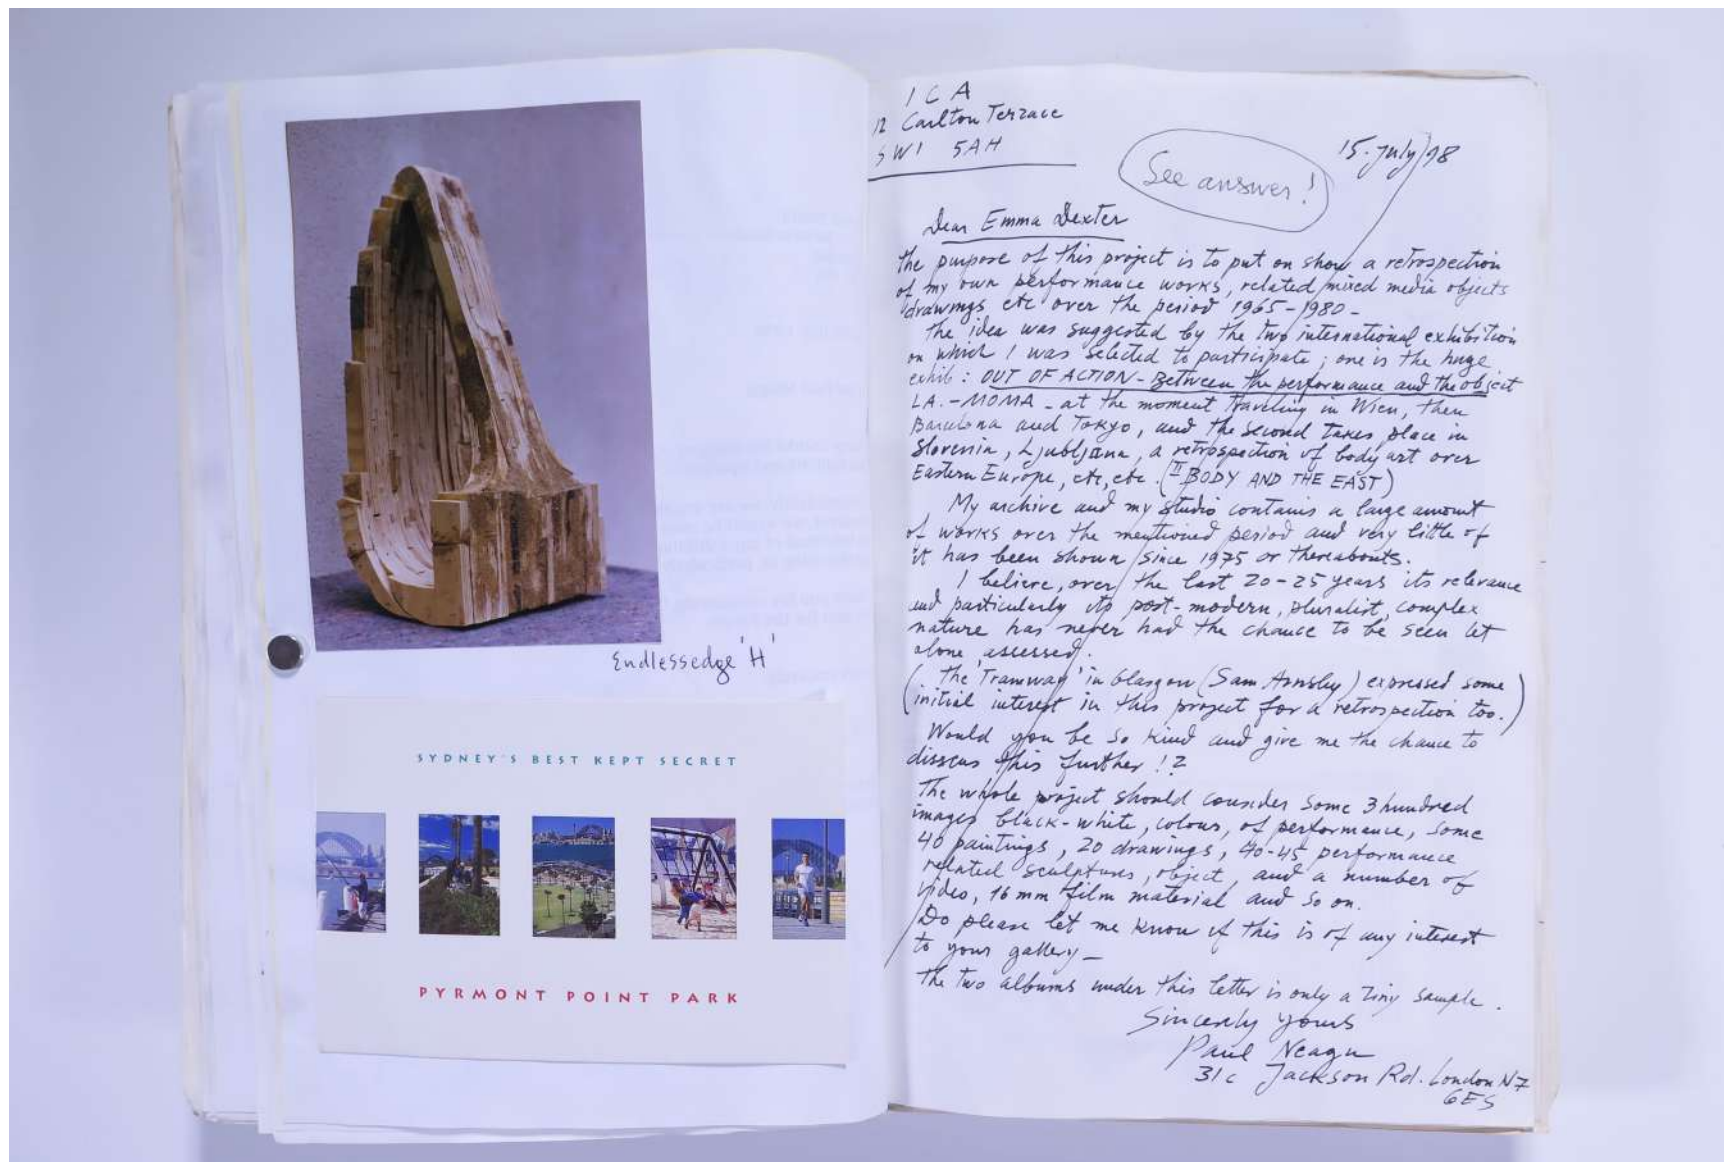 Endlessedge 'H'
SYDNEY'S BEST KEPT SECRET
PYRMONT POINT PARK
ICA
12 Carlton Terrace
SW1 5AH
15. July/98
See answer!
Dear Emma Dexter
the purpose of this project is to put on show a retrospection
of my own performance works, related mixed media objects
drawings etc over the period 1965-1980-
the idea was suggested by the two international exhibition
on which I was selected to participate; one is the huge
exhib: OUT OF ACTION - Between the performance and the object
LA.-MOMA - at the moment traveling in Wien, then
Barcelona and Tokyo, and the second takes place in
Slovenia, Ljubljana, a retrospection of body art over
Eastern Europe, etc, etc. (II BODY AND THE EAST)
My archive and my studio contains a large amount
of works over the mentioned period and very little of
it has been shown since 1975 or thereabouts.
I believe, over the last 20-25 years its relevance
and particularly its post-modern, pluralist, complex
nature has never had the chance to be seen let
alone assessed.
(The 'Tramway' in Glasgow (Sam Ainsley) expressed some
initial interest in this project for a retrospection too.)
Would you be so kind and give me the chance to
disscus this further!?
The whole project should consider some 3 hundred
images black-white, colour, of performance, some
40 paintings, 20 drawings, 40-45 performance
related sculptures, object, and a number of
video, 16 mm film material and so on.
Do please let me know if this is of any interest
to your gallery-
The two albums under this letter is only a tiny sample.
Sincerly yours
Paul Neagu
31c Jackson Rd. London N7
6ES